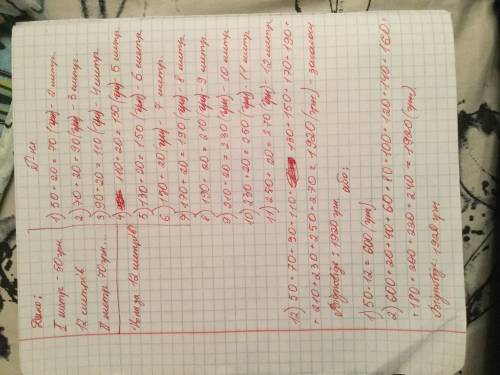 Дано:
I метр 50грн
12 метрів
II метр 70грн...
Ціна за 12 метрів?
1) 50+20=70 (грн) - 2 метр
2) 70+20=90(грн) - 3 метр.
3) 90+20=110 (грн) - 4 метр.
4) 110+20=130 (грн) 5 метр
5) 130+20=150 (грн) - 6 метр.
6) 150+20 (грн) - 7 метр.
7) 170+20=190 (грн) - 8 метр
8) 190+20=210 (грн) 9 метр
9) 210+20=230 (грн) - 10 метр
10) 230+20=250 (грн) 11 метр
11) 250+20=270 (грн) - 12 метр
12) 50+70+90+110+130+150+170+190+
+210+230+250+270=1920 (грн) загалом
Відповідь: 1920 грн. або:
1) 50·12=600 (грн)
2) 600+20+40+60+80+100+120+140+160+
+180+200+220+240=1920 (грн)
Відповідь: 1920 грн